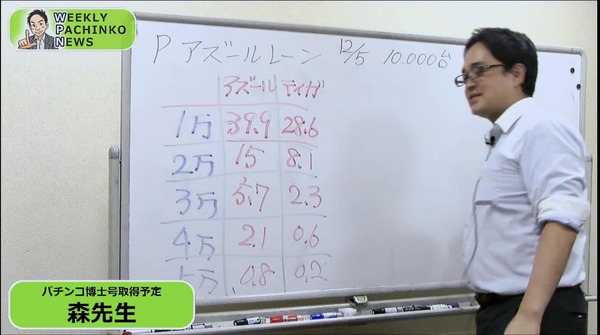 WEEKLY
PACHINKO
NEWS
P アズールレーン 12/5 10.000台
アズール ディガ
1万 39.9 28.6
2万 15 8.1
3万 5.7 2.3
4万 2.1 0.6
5万 0.8 0.2
パチンコ博士号取得予定
森先生